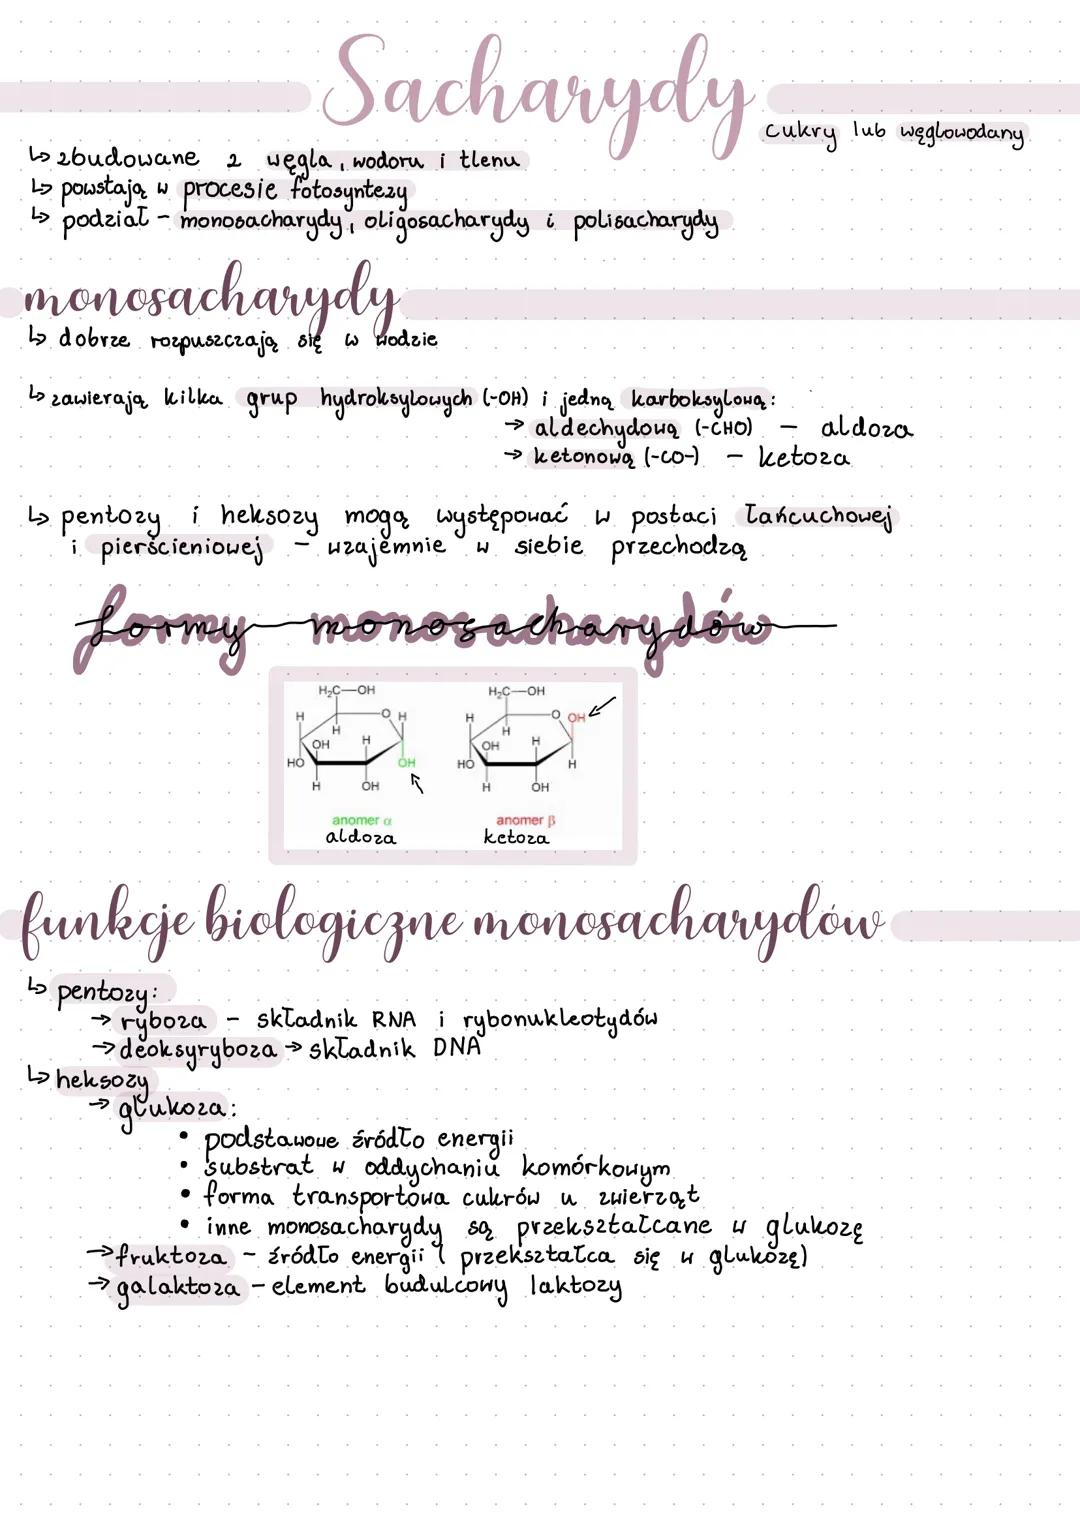 Sacharydy
cukry lub węglowodany
↳ zbudowane z węgla, wodoru i tlenu
↳ powstają w procesie fotosyntezy
↳ podział - monosacharydy, oligosacharydy i polisacharydy
monosacharydy
↳ dobrze rozpuszczają się w wodzie
↳ zawierają kilka grup hydroksylowych (-OH) i jedną karboksylową:
→ aldechydową (-CHO) - aldoza
→ ketonową (-CO-) - ketoza
↳ pentozy i heksozy mogą występować w postaci łańcuchowej
i pierścieniowej - wzajemnie w siebie przechodzą
formy monosacharydów
H₂C-OH H₂C-OH
H O H H O OH
H H
OH H OH H
HO OH HO H
H OH H OH
anomer α anomer β
aldoza ketoza
funkcje biologiczne monosacharydów
↳ pentozy:
→ ryboza - składnik RNA i rybonukleotydów
→ deoksyryboza → składnik DNA
↳ heksozy
→ glukoza:
• podstawowe źródło energii
• substrat w oddychaniu komórkowym
• forma transportowa cukrów u zwierząt
• inne monosacharydy są przekształcane w glukozę
→ fruktoza - źródło energii ( przekształca się w glukozę)
→ galaktoza - element budulcowy laktozy